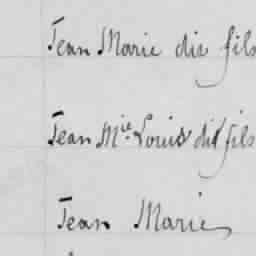 Jean Marie dis fils
Jean M^ie Louis dit fils
Jean Marie